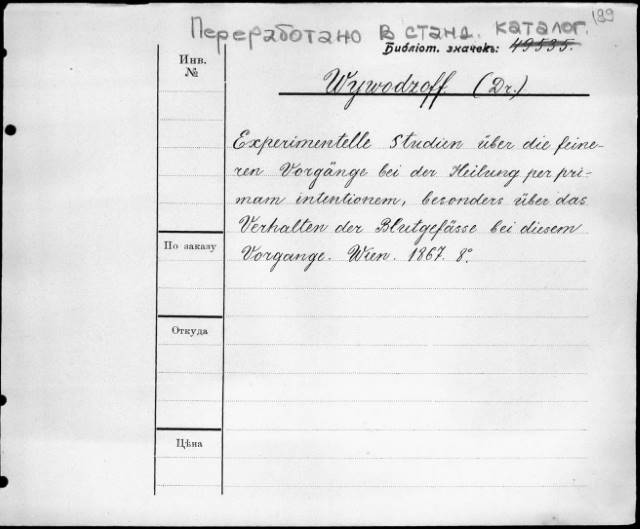 Переработано в станд. каталог. 199
Библіот. значекъ: 49535.
Инв.
№
Wywodzoff (Dr.)
Experimentelle Studien über die feine-
ren Vorgänge bei der Heilung per pri-
mam intentionem, besonders über das
Verhalten der Blutgefässe bei diesem
Vorgange. Wien. 1867. 8°.
По заказу
Откуда
Цѣна